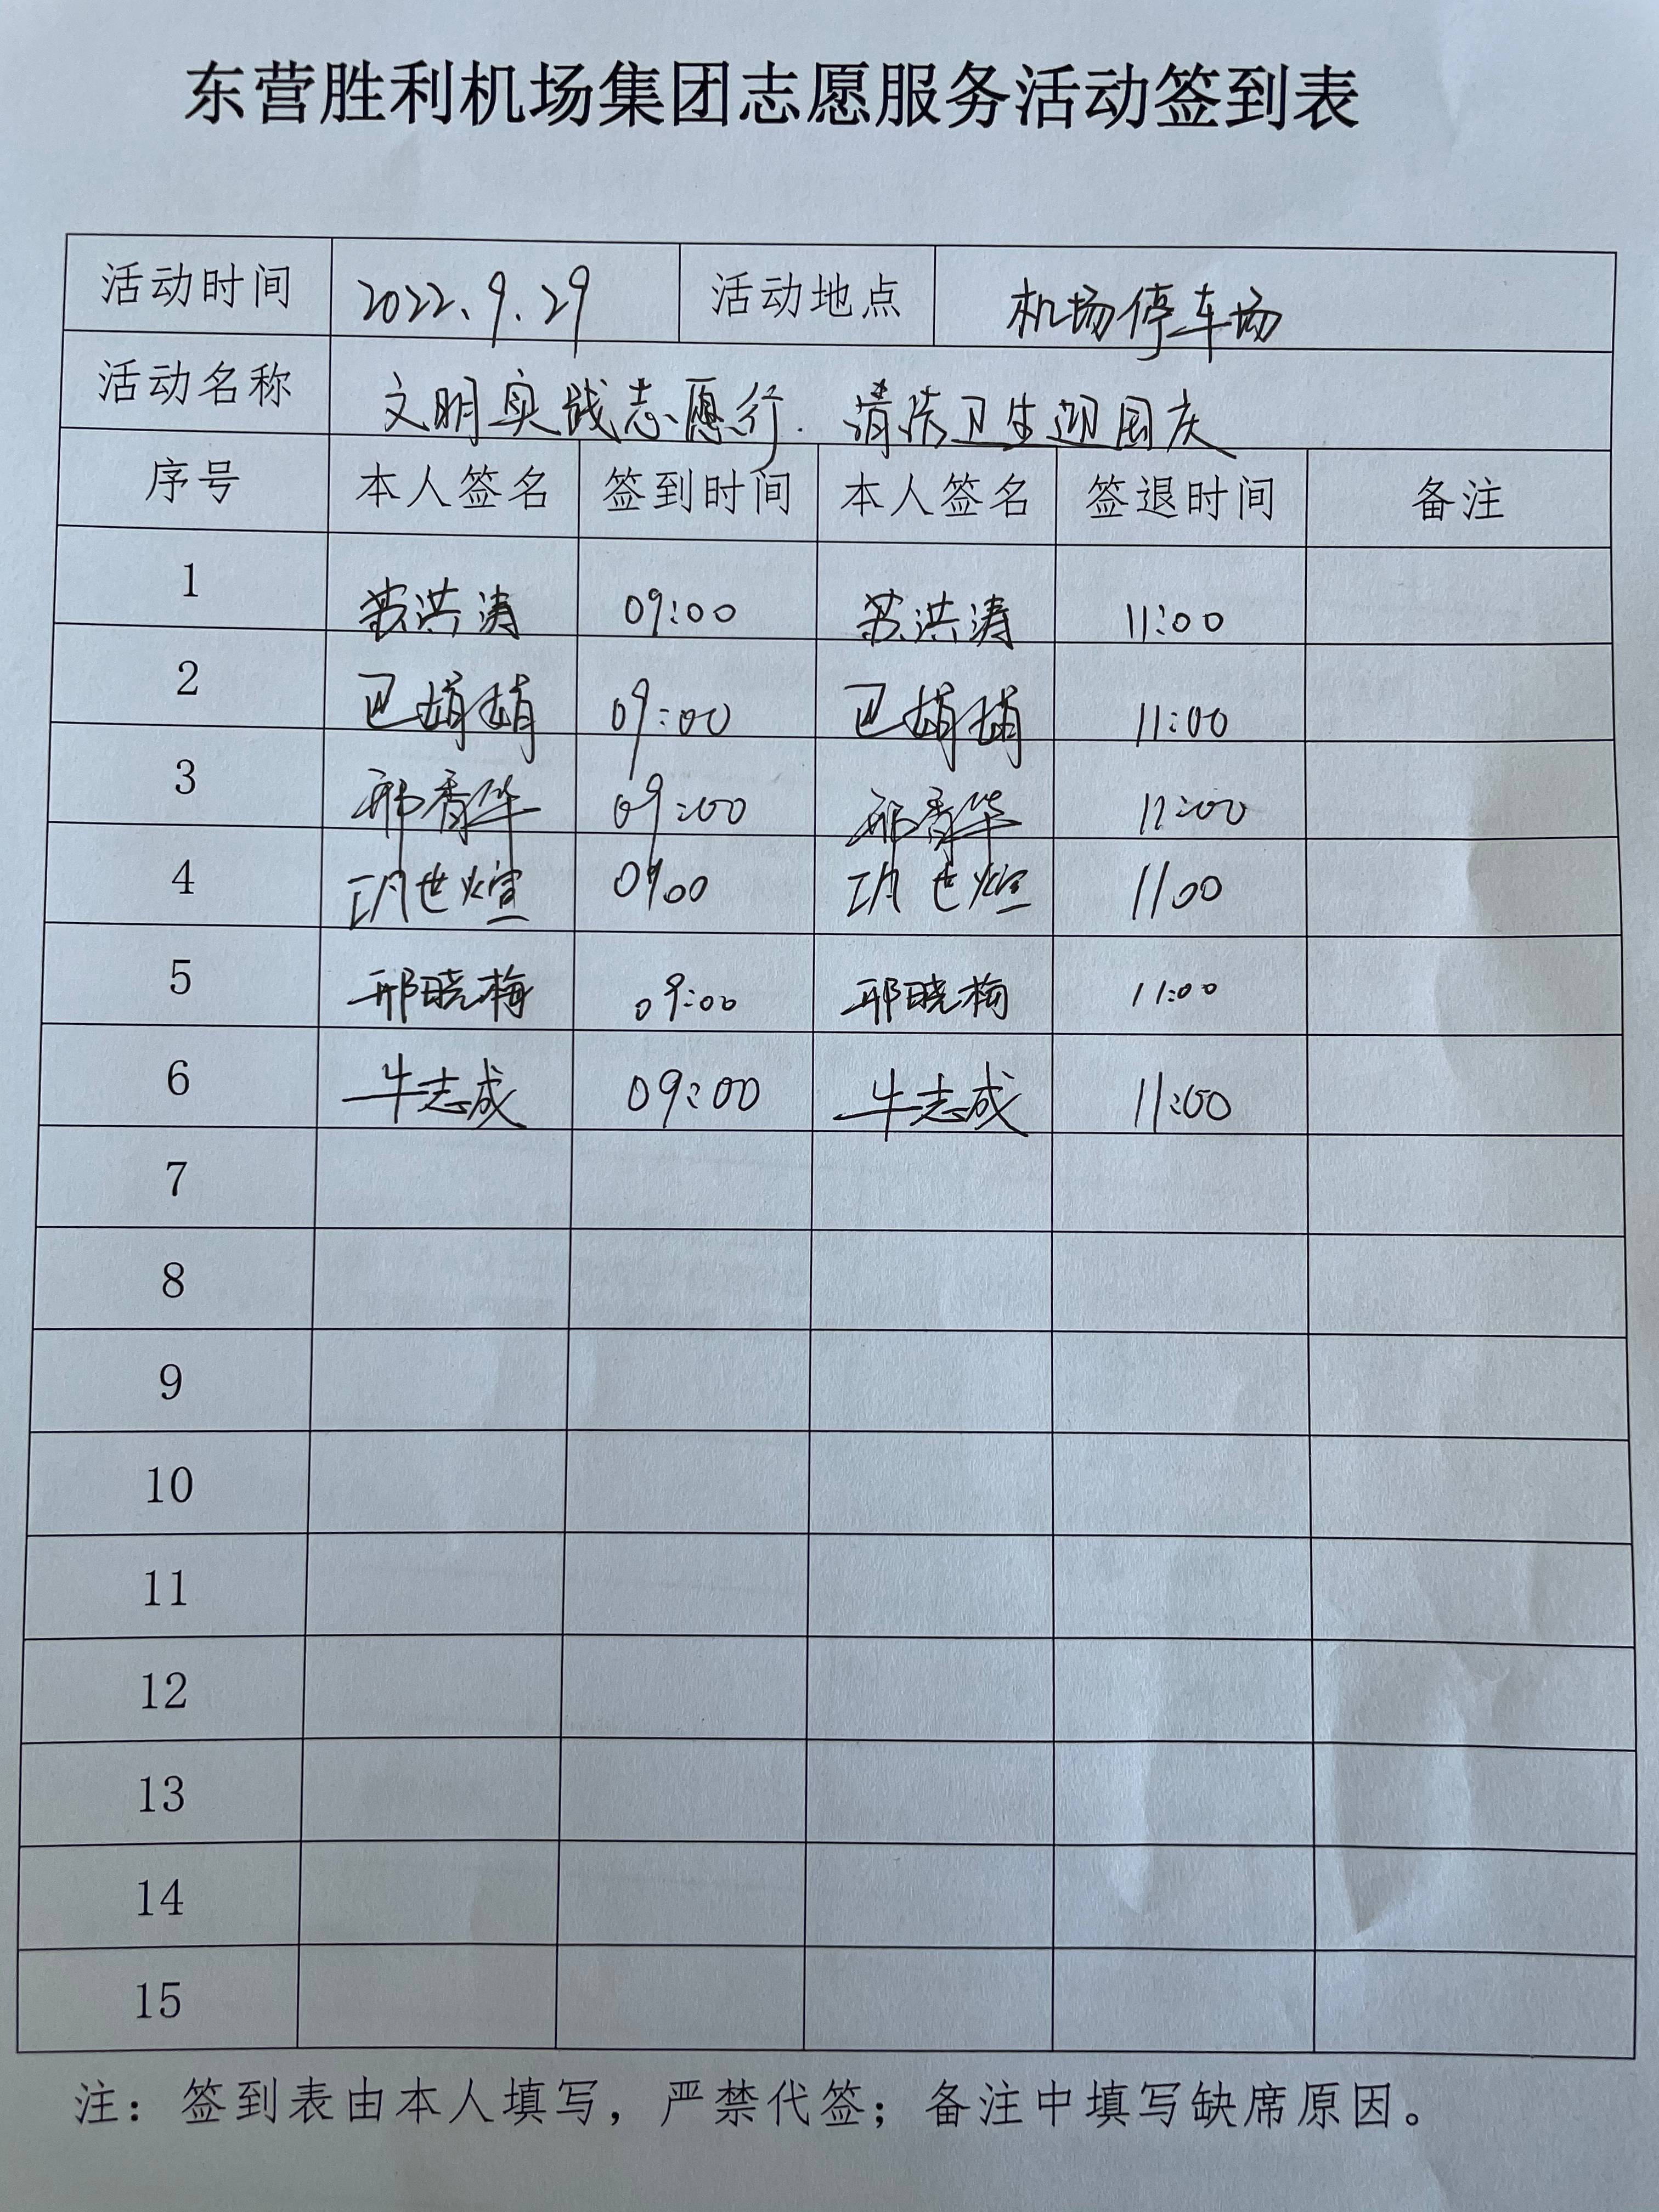 东营胜利机场集团志愿服务活动签到表
活动时间 2022.9.29 活动地点 机场停车场
活动名称 文明实践志愿行.清洁卫生迎国庆
序号 本人签名 签到时间 本人签名 签退时间 备注
1 苏洪涛 09:00 苏洪涛 11:00
2 巴娟娟 09:00 巴娟娟 11:00
3 邢香华 09:00 邢香华 11:00
4 世煊 09:00 世煊 11:00
5 邢晓梅 09:00 邢晓梅 11:00
6 牛志成 09:00 牛志成 11:00
7
8
9
10
11
12
13
14
15
注：签到表由本人填写，严禁代签；备注中填写缺席原因。